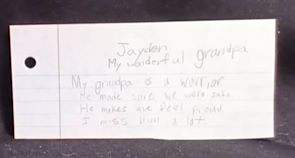 Jayden
My wonderful grandpa
My grandpa is a worrior
He made sure we were safe
He makes me feel proud
I miss him a lot